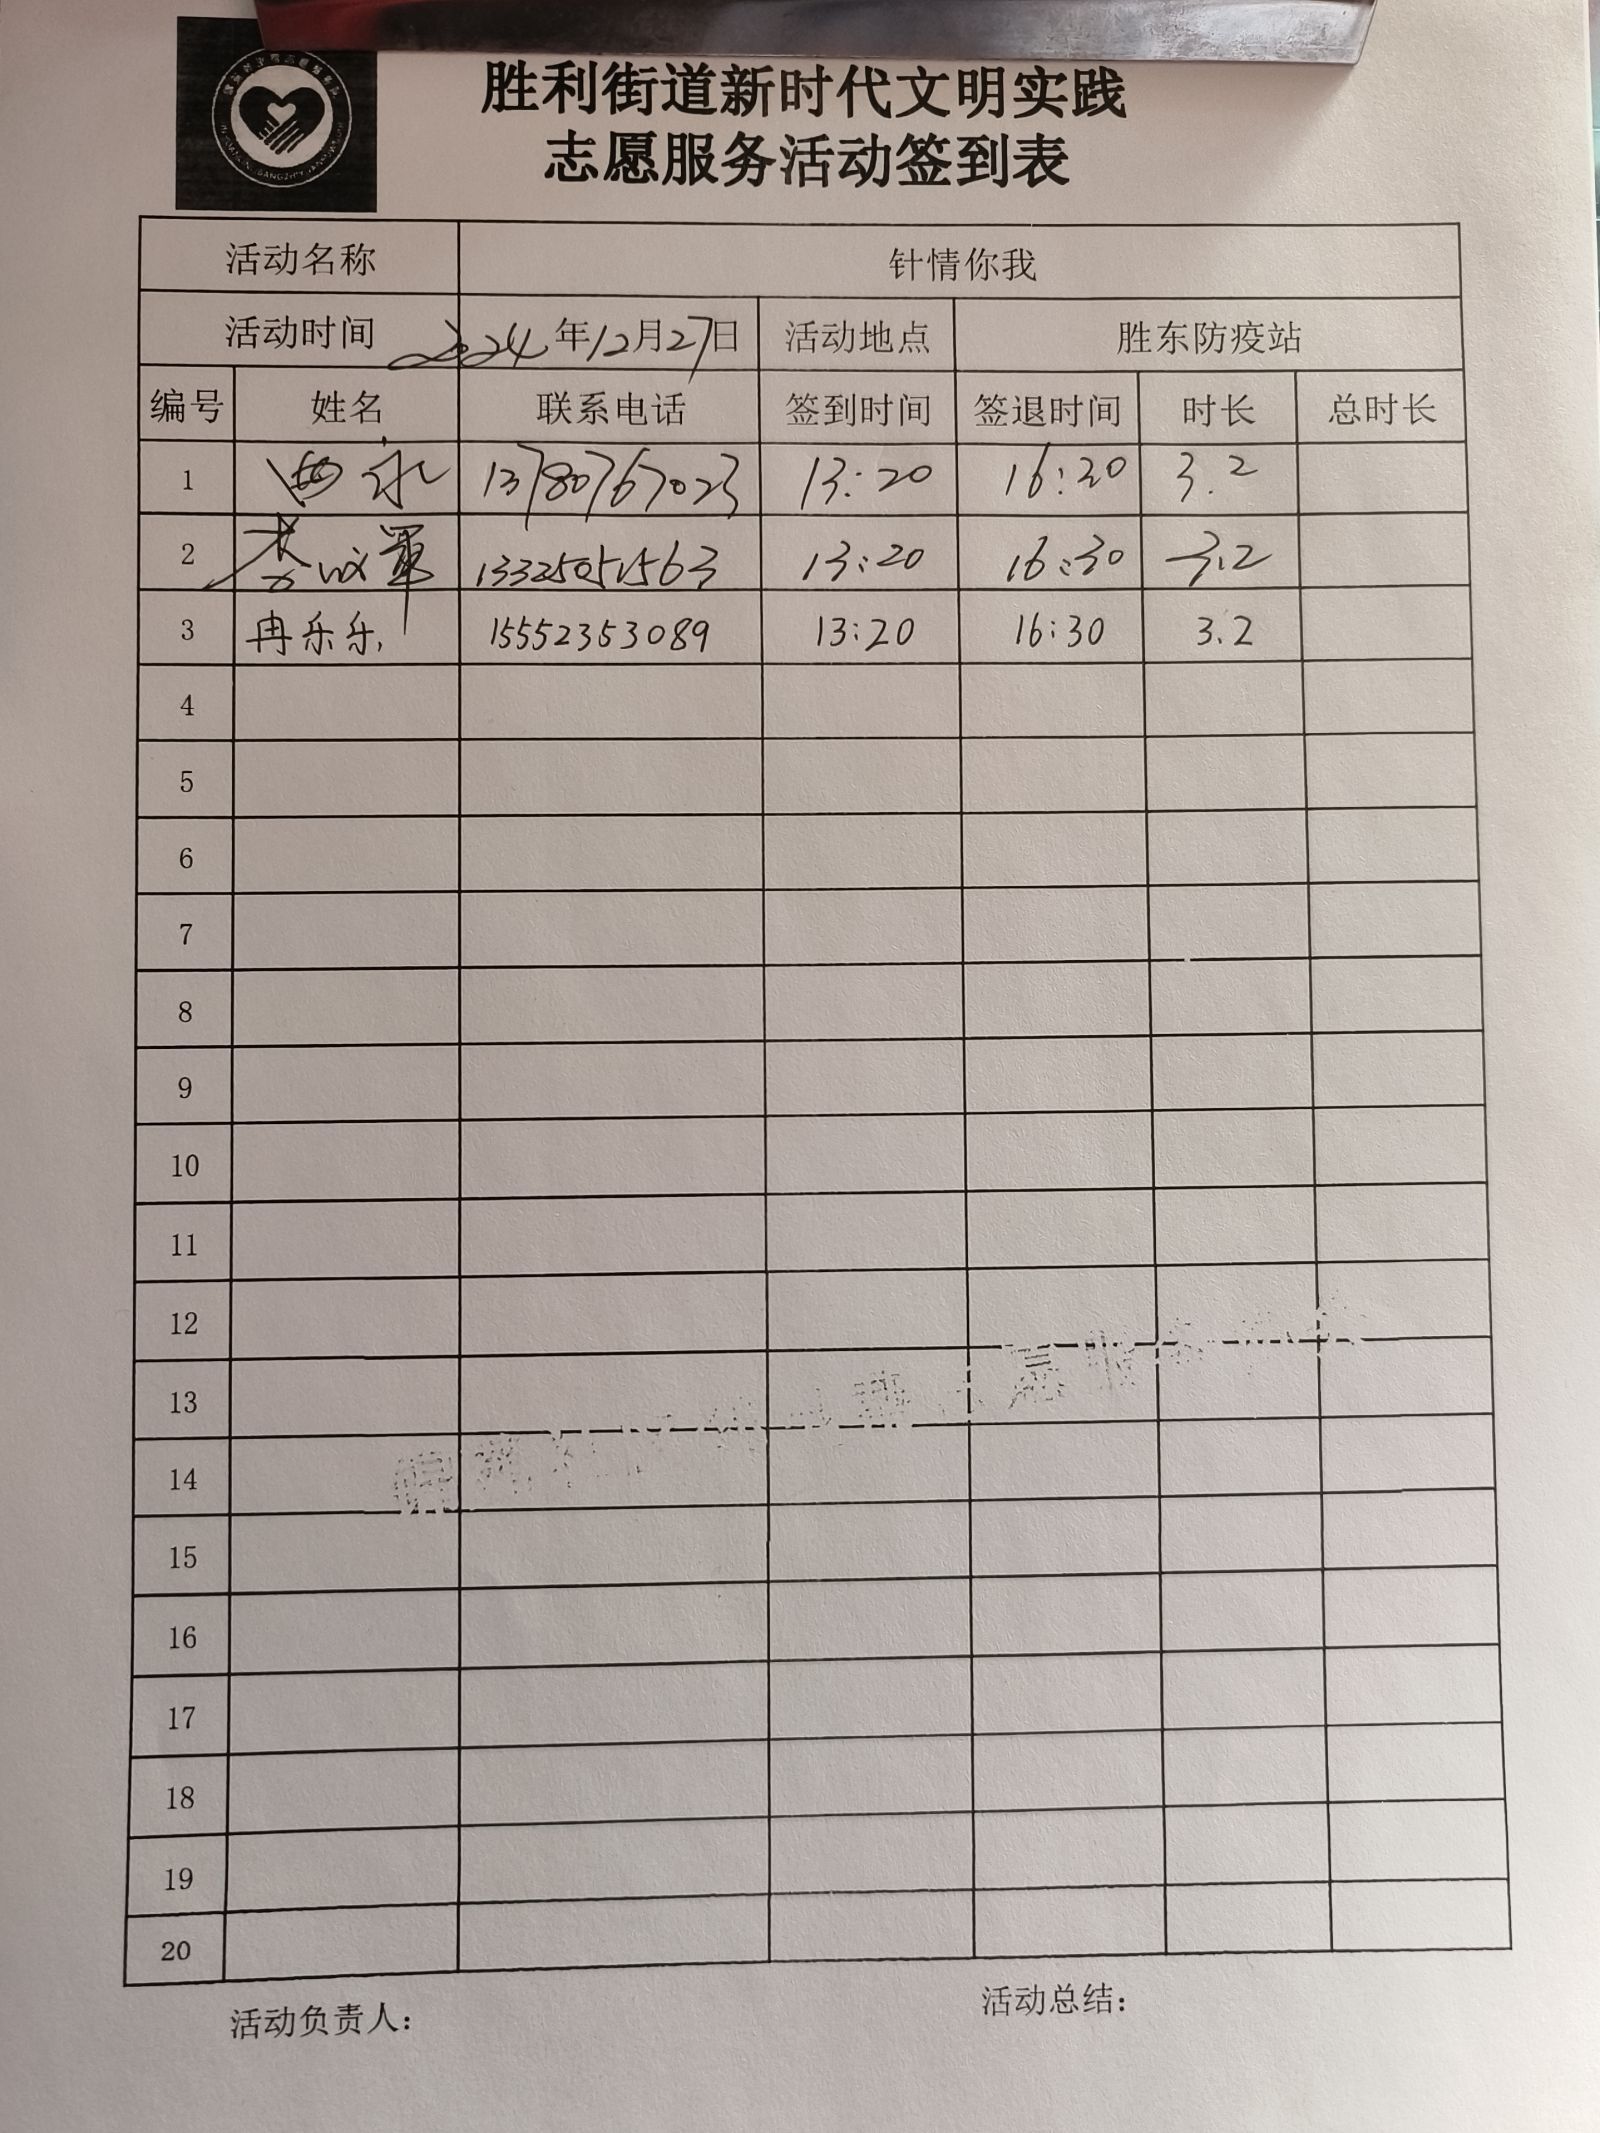 胜利街道新时代文明实践
志愿服务活动签到表
活动名称 针情你我
活动时间 2024年12月27日 活动地点 胜东防疫站
编号 姓名 联系电话 签到时间 签退时间 时长 总时长
1 13780767023 13:20 16:30 3.2
2 13325051563 13:20 16:30 3.2
3 冉乐乐 15552353089 13:20 16:30 3.2
4
5
6
7
8
9
10
11
12
13
14
15
16
17
18
19
20
活动负责人: 活动总结: